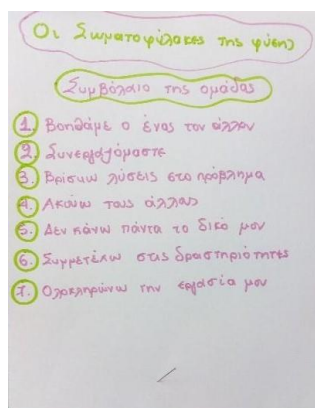 Οι Σωματοφύλακες της φύσης
Συμβόλαιο της ομάδας
1. Βοηθάμε ο ένας τον άλλον
2. Συνεργαζόμαστε
3. Βρίσκω λύσεις στο πρόβλημα
4. Ακούω τους άλλους
5. Δεν κάνω πάντα το δικό μου
6. Συμμετέχω στις δραστηριότητες
7. Ολοκληρώνω την εργασία μου